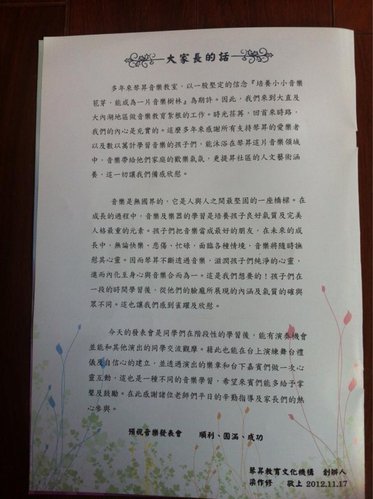 大家長的話
多年來琴昇音樂教室，以一股堅定的信念『培養小小音樂
花芽，能成為一片音樂樹林』為期許。因此，我們來到大直及
大內湖地區做音樂教育紮根的工作。時光荏苒，回首來時路，
我們的內心是充實的。這麼多年來感謝所有支持琴昇的愛樂者
以及數以萬計學習音樂的孩子們，能沐浴在琴昇這片音樂領域
中，音樂帶給他們家庭的歡樂氣氛，更提昇社區的人文藝術涵
養，這一切讓我們備感欣慰。
音樂是無國界的，它是人與人之間最堅固的一座橋樑。在
成長的過程中，音樂及樂器的學習是培養孩子良好氣質及完美
人格最重的元素。孩子們把音樂當成最好的朋友，在未來的成
長中，無論快樂、悲傷、忙碌，面臨各種情境，音樂將隨時撫
慰其心靈。因而琴昇不斷透過音樂，滋潤孩子們純淨的心靈，
進而內化至身心與音樂合而為一。這是我們想要的！孩子們在
一段的時間學習後，從他們的臉龐所展現的內涵及氣質的確與
眾不同。這也讓我們感到雀躍及欣慰。
今天的發表會是同學們在階段性的學習後，能有演奏機會
並能和其他演出的同學交流觀摩。藉此也能在台上演練舞台禮
儀及自信心的建立，並透過演出的樂章和台下嘉賓們做一次心
靈互動，這也是一種不同的音樂學習，希望來賓們能多給予掌
聲及鼓勵。在此感謝諸位老師們平日的辛勤指導及家長們的熱
心參與。
預祝音樂發表會 順利、圓滿、成功
琴昇教育文化機構 創辦人
梁作修 敬上 2012.11.17